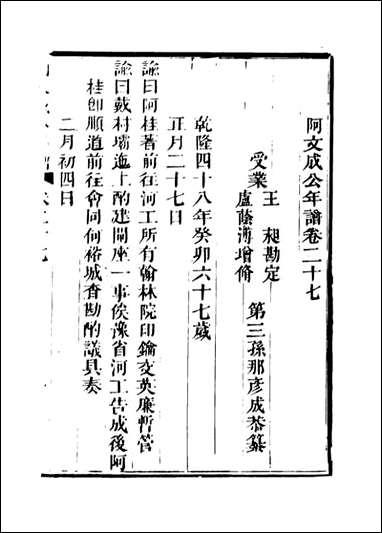 阿文成公年譜卷二十七
第三孫那彥成恭纂
受業
王昶勘定
盧蔭溥增脩
乾隆四十八年癸卯六十七歲
正月二十七日
諭曰阿桂著前往河工所有翰林院印鑰交英廉暫管
諭曰戴村壩迤上酌建閘座一事俟豫省河工告成後阿
桂卽順道前往會同何裕城查勘酌議具奏
二月初四日